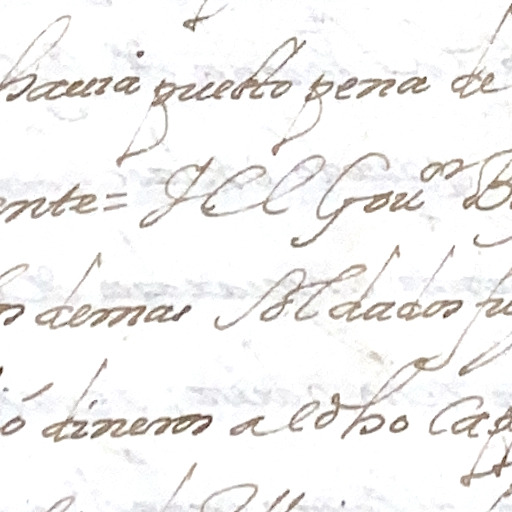 hauia puesto pena de
ente = Y El Gouor
los demas Soldados
ió dineros al dho Cap